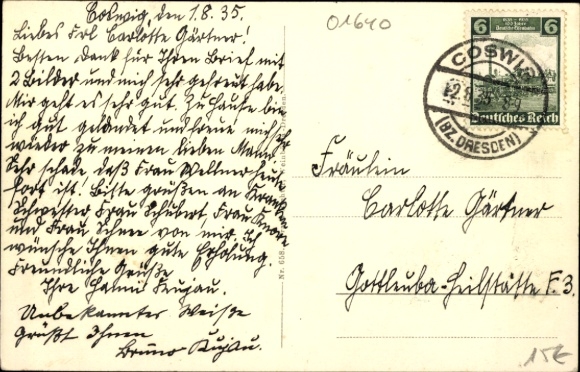 Coswig, den 1.8.35.
Liebes Frl Carlotte Gärtner!
Besten Dank für Ihren Brief mit
2 Bilder und mich sehr gefreut habe.
Mir geht es sehr gut. Zu Hause bin
ich gut gelandet und freue mich
wieder zu meinen lieben Mann.
Sehr schade, daß Frau Wellner heute
fort ist. Bitte grüßen an Kranken
Schwester Frau Schubert, Frau
und Frau von mir. Ich
wünsche Ihnen gute Erholung.
Freundliche Grüße
Ihre Hanni
Unbekannter Weise
Grüßt Ihnen
Bruno
Nr. 658
01640
6 6
Deutsches Reich
COSWIG
(BZ. DRESDEN)
Fräulein
Carlotte Gärtner
Gottleuba-Heilstätte F. 3.
15€